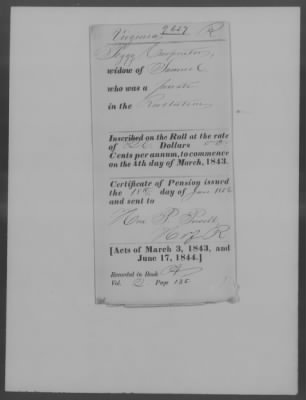 Virginia 9627
Peggy Carpenter,
widow of Samuel
who was a private
in the Revolution
Inscribed on the Roll at the rate
of Dollars
Cents per annum, to commence
on the 4th day of March, 1843.
Certificate of Pension issued
the 18th day of June
and sent to
Hon P.
H of R
[Acts of March 3, 1843, and
June 17, 1844.]
Recorded in Book A
Vol. 2 Page 135